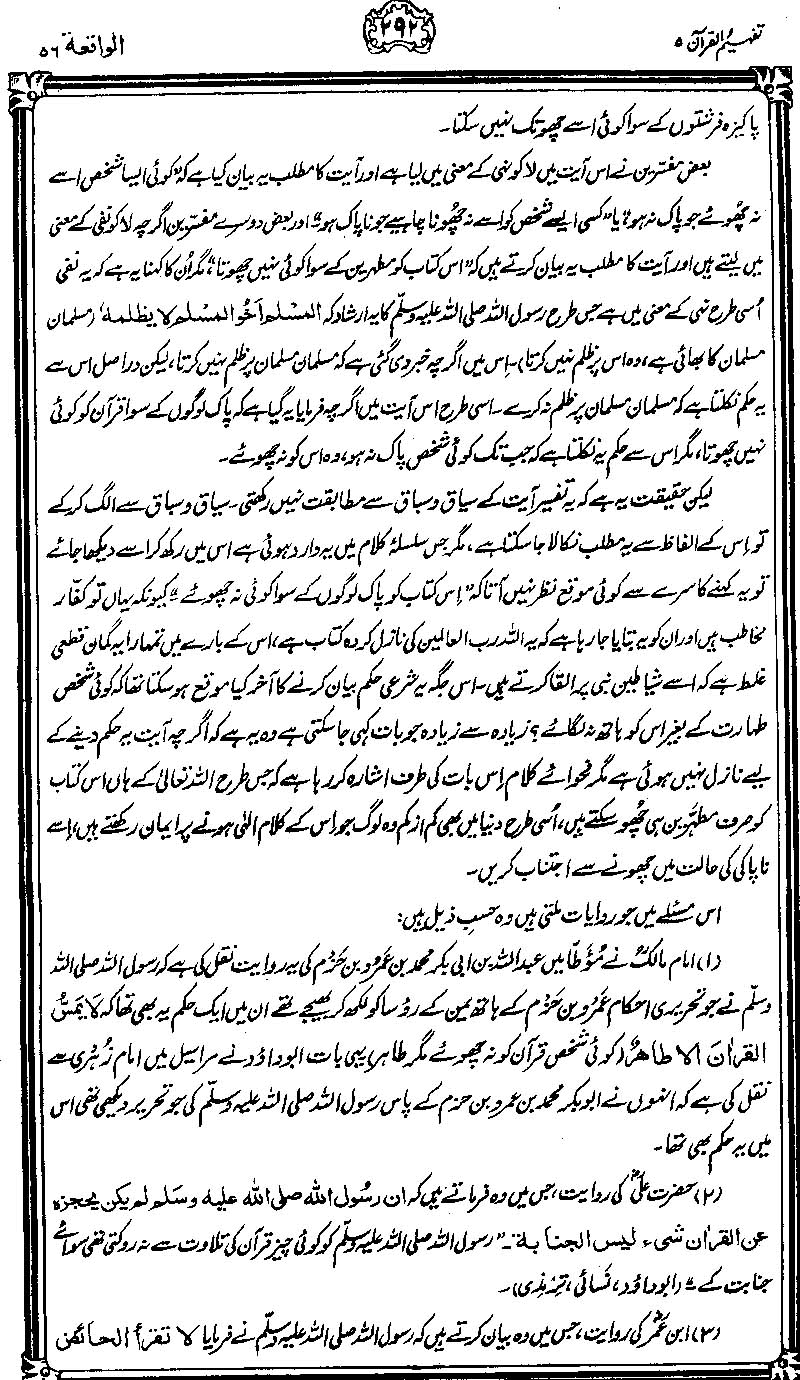 تفہیم القرآن ۵
۲۹۲
الواقعۃ ۵۶
پاکیزہ فرشتوں کے سوا کوئی اسے چھو تک نہیں سکتا۔
بعض مفسرین نے اس آیت میں لا کو نہی کے معنی میں لیا ہے اور آیت کا مطلب یہ بیان کیا ہے کہ ”کوئی ایسا شخص اسے
نہ چھوئے جو پاک نہ ہو“، یا ”کسی ایسے شخص کو اسے نہ چھونا چاہیے جو ناپاک ہو“۔ اور بعض دوسرے مفسرین اگرچہ لا کو نفی کے معنی
میں لیتے ہیں اور آیت کا مطلب یہ بیان کرتے ہیں کہ ”اس کتاب کو مطہرین کے سوا کوئی نہیں چھوتا“، مگر اُن کا کہنا یہ ہے کہ یہ نفی
اُسی طرح نہی کے معنی میں ہے جس طرح رسول اللہ صلی اللہ علیہ وسلّم کا یہ ارشاد کہ المسلم اخو المسلم لا یظلمہ، (مسلمان
مسلمان کا بھائی ہے، وہ اس پر ظلم نہیں کرتا)۔ اِس میں اگرچہ خبر دی گئی ہے کہ مسلمان مسلمان پر ظلم نہیں کرتا، لیکن دراصل اس سے
یہ حکم نکلتا ہے کہ مسلمان مسلمان پر ظلم نہ کرے۔ اسی طرح اس آیت میں اگرچہ فرمایا یہ گیا ہے کہ پاک لوگوں کے سوا قرآن کو کوئی
نہیں چھوتا، مگر اس سے حکم یہ نکلتا ہے کہ جب تک کوئی شخص پاک نہ ہو، وہ اس کو نہ چھوئے۔
لیکن حقیقت یہ ہے کہ یہ تفسیر آیت کے سیاق و سباق سے مطابقت نہیں رکھتی۔ سیاق و سباق سے الگ کر کے
تو اِس کے الفاظ سے یہ مطلب نکالا جا سکتا ہے، مگر جس سلسلۂ کلام میں یہ وارد ہوئی ہے اس میں رکھ کر اسے دیکھا جائے
تو یہ کہنے کا سرے سے کوئی موقع نظر نہیں آتا کہ ”اِس کتاب کو پاک لوگوں کے سوا کوئی نہ چھوئے“۔ کیونکہ یہاں تو کفّار
مخاطب ہیں اور ان کو یہ بتایا جا رہا ہے کہ یہ اللہ رب العالمین کی نازل کردہ کتاب ہے، اس کے بارے میں تمہارا یہ گمان قطعی
غلط ہے کہ اسے شیاطین نبی پر القا کرتے ہیں۔ اس جگہ یہ شرعی حکم بیان کرنے کا آخر کیا موقع ہو سکتا تھا کہ کوئی شخص
طہارت کے بغیر اس کو ہاتھ نہ لگائے؟ زیادہ سے زیادہ جو بات کہی جا سکتی ہے وہ یہ ہے کہ اگرچہ آیت یہ حکم دینے کے
لیے نازل نہیں ہوئی ہے مگر فحوائے کلام اِس بات کی طرف اشارہ کر رہا ہے کہ جس طرح اللہ تعالیٰ کے ہاں اس کتاب
کو صرف مطہَّرین ہی چھو سکتے ہیں، اُسی طرح دنیا میں بھی کم از کم وہ لوگ جو اس کے کلامِ الٰہی ہونے پر ایمان رکھتے ہیں، اِسے
ناپاکی کی حالت میں چھونے سے اجتناب کریں۔
اس مسئلے میں جو روایات ملتی ہیں وہ حسبِ ذیل ہیں:
(۱) امام مالکؒ نے مُؤطّا میں عبد اللہ بن ابی بکر محمد بن عمرو بن حزم کی یہ روایت نقل کی ہے کہ رسول اللہ صلی اللہ
وسلّم نے جو تحریری احکام عمرو بن حزم کے ہاتھ یمن کے رؤسا کو لکھ کر بھیجے تھے ان میں ایک حکم یہ بھی تھا کہ لا یمسّ
القراٰن الا طاھرٌ (کوئی شخص قرآن کو نہ چھوئے مگر طاہر) یہی بات ابو داؤد نے مراسیل میں امام زُہری سے
نقل کی ہے کہ انہوں نے ابو بکر محمد بن عمرو بن حزم کے پاس رسول اللہ صلی اللہ علیہ وسلّم کی جو تحریر دیکھی تھی اس
میں یہ حکم بھی تھا۔
(۲) حضرت علیؓ کی روایت، جس میں وہ فرماتے ہیں کہ ان رسُول اللہ صلی اللہ علیہ وسَلم لم یکن یحجزہ
عن القراٰن شیء لیس الجنابۃ۔ ”رسول اللہ صلی اللہ علیہ وسلّم کو کوئی چیز قرآن کی تلاوت سے نہ روکتی تھی سوائے
جنابت کے“۔ (ابو داؤد، نَسائی، ترمذی)۔
(۳) ابن عمرؓ کی روایت، جس میں وہ بیان کرتے ہیں کہ رسول اللہ صلی اللہ علیہ وسلّم نے فرمایا لا تقرأ الحائض